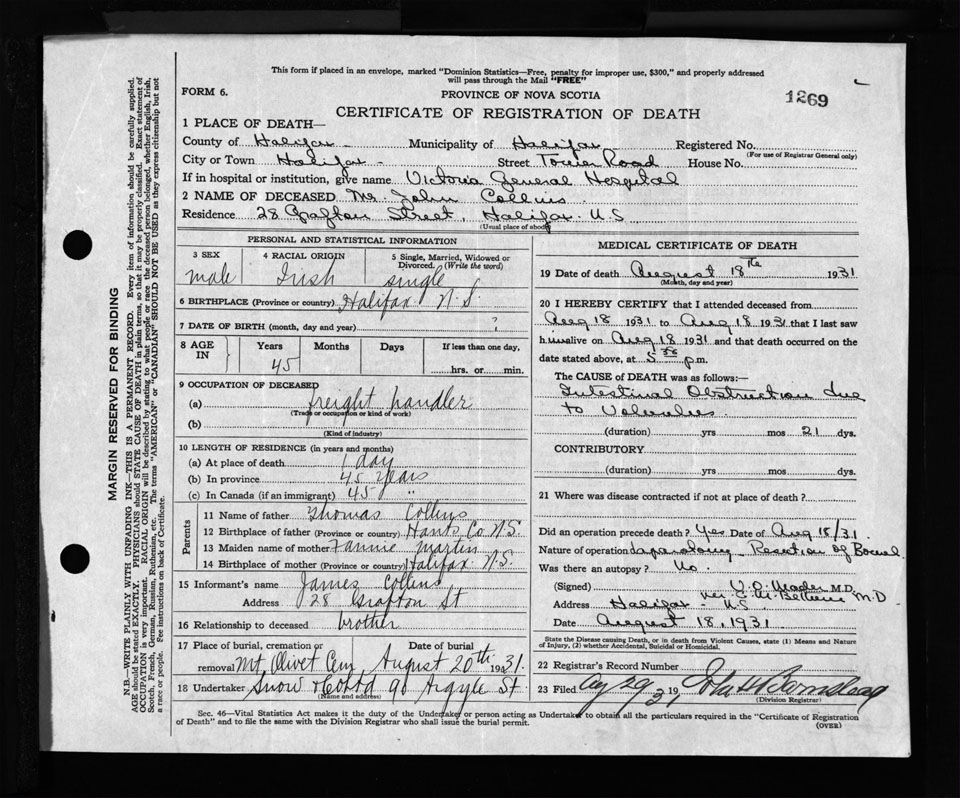 This form if placed in an envelope, marked "Dominion Statistics—Free, penalty for improper use, $300," and properly addressed
will pass through the Mail "FREE"
FORM 6.
PROVINCE OF NOVA SCOTIA
1269
CERTIFICATE OF REGISTRATION OF DEATH
1 PLACE OF DEATH—
County of Halifax Municipality of Halifax Registered No.
(For use of Registrar General only)
City or Town Halifax Street Tower Road House No.
If in hospital or institution, give name Victoria General Hospital
2 NAME OF DECEASED Mr. John Collins
Residence 28 Grafton Street, Halifax N.S
(Usual place of abode)
PERSONAL AND STATISTICAL INFORMATION
3 SEX 4 RACIAL ORIGIN 5 Single, Married, Widowed or
Divorced. (Write the word)
male Irish single
6 BIRTHPLACE (Province or country) Halifax N.S.
7 DATE OF BIRTH (month, day and year) ?
8 AGE IN Years Months Days If less than one day,
45 hrs. or min.
9 OCCUPATION OF DECEASED
(a) freight handler
(Trade or occupation or kind of work)
(b)
(Kind of industry)
10 LENGTH OF RESIDENCE (in years and months)
(a) At place of death 1 day
(b) In province 45 years
(c) In Canada (if an immigrant) 45 "
Parents
11 Name of father Thomas Collins
12 Birthplace of father (Province or country) Hants Co N.S.
13 Maiden name of mother Fannie Martin
14 Birthplace of mother (Province or country) Halifax N.S.
15 Informant's name James Collins
Address 28 Grafton St
16 Relationship to deceased brother
17 Place of burial, cremation or Date of burial
removal Mt Olivet Cem, August 20th 1931.
18 Undertaker Snow & Co Ltd 90 Argyle St.
(Name and address)
MEDICAL CERTIFICATE OF DEATH
19 Date of death August 18th 1931
(Month, day and year)
20 I HEREBY CERTIFY that I attended deceased from
Aug 18 1931 to Aug 18 1931 that I last saw
him alive on Aug 18 1931 and that death occurred on the
date stated above, at 5 p.m.
The CAUSE of DEATH was as follows:—
Intestinal Obstruction due
to Volvulus.
(duration) yrs mos 21 dys.
CONTRIBUTORY
(duration) yrs mos dys.
21 Where was disease contracted if not at place of death?
Did an operation precede death? Yes Date of Aug 18/31.
Nature of operation Laparotomy - Resection of Bowel
Was there an autopsy? No.
(Signed) M.D.
M.D
Address Halifax - N.S.
Date August 18, 1931
State the Disease causing Death, or in death from Violent Causes, state (1) Means and Nature
of Injury, (2) whether Accidental, Suicidal or Homicidal.
22 Registrar's Record Number
23 Filed Aug 29 31 19
(Division Registrar)
Sec. 46—Vital Statistics Act makes it the duty of the Undertaker or person acting as Undertaker to obtain all the particulars required in the "Certificate of Registration
of Death" and to file the same with the Division Registrar who shall issue the burial permit.
(OVER)
MARGIN RESERVED FOR BINDING
N.B.—WRITE PLAINLY WITH UNFADING INK—THIS IS A PERMANENT RECORD. Every item of information should be carefully supplied.
AGE should be stated EXACTLY. PHYSICIANS should STATE CAUSE OF DEATH in plain terms, so that it may be properly classified. Exact statement of
OCCUPATION is very important. RACIAL ORIGIN will be described by stating to what people or race the deceased person belonged, whether English, Irish,
Scotch, French, German, Russian, Ruthenian, etc. The terms "AMERICAN" or "CANADIAN" SHOULD NOT BE USED as they express citizenship but not
a race or people. See instructions on back of Certificate.